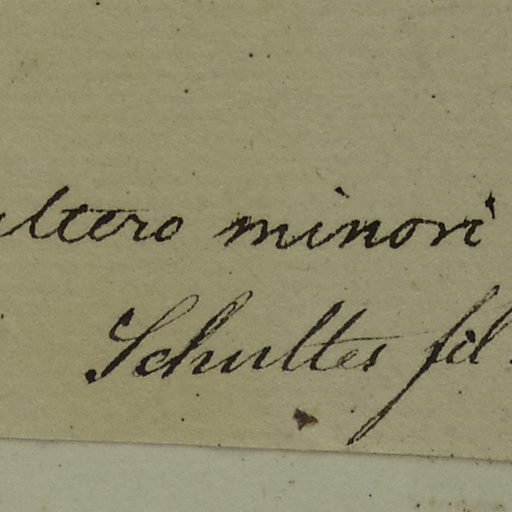 altero minori
Schultes fil.